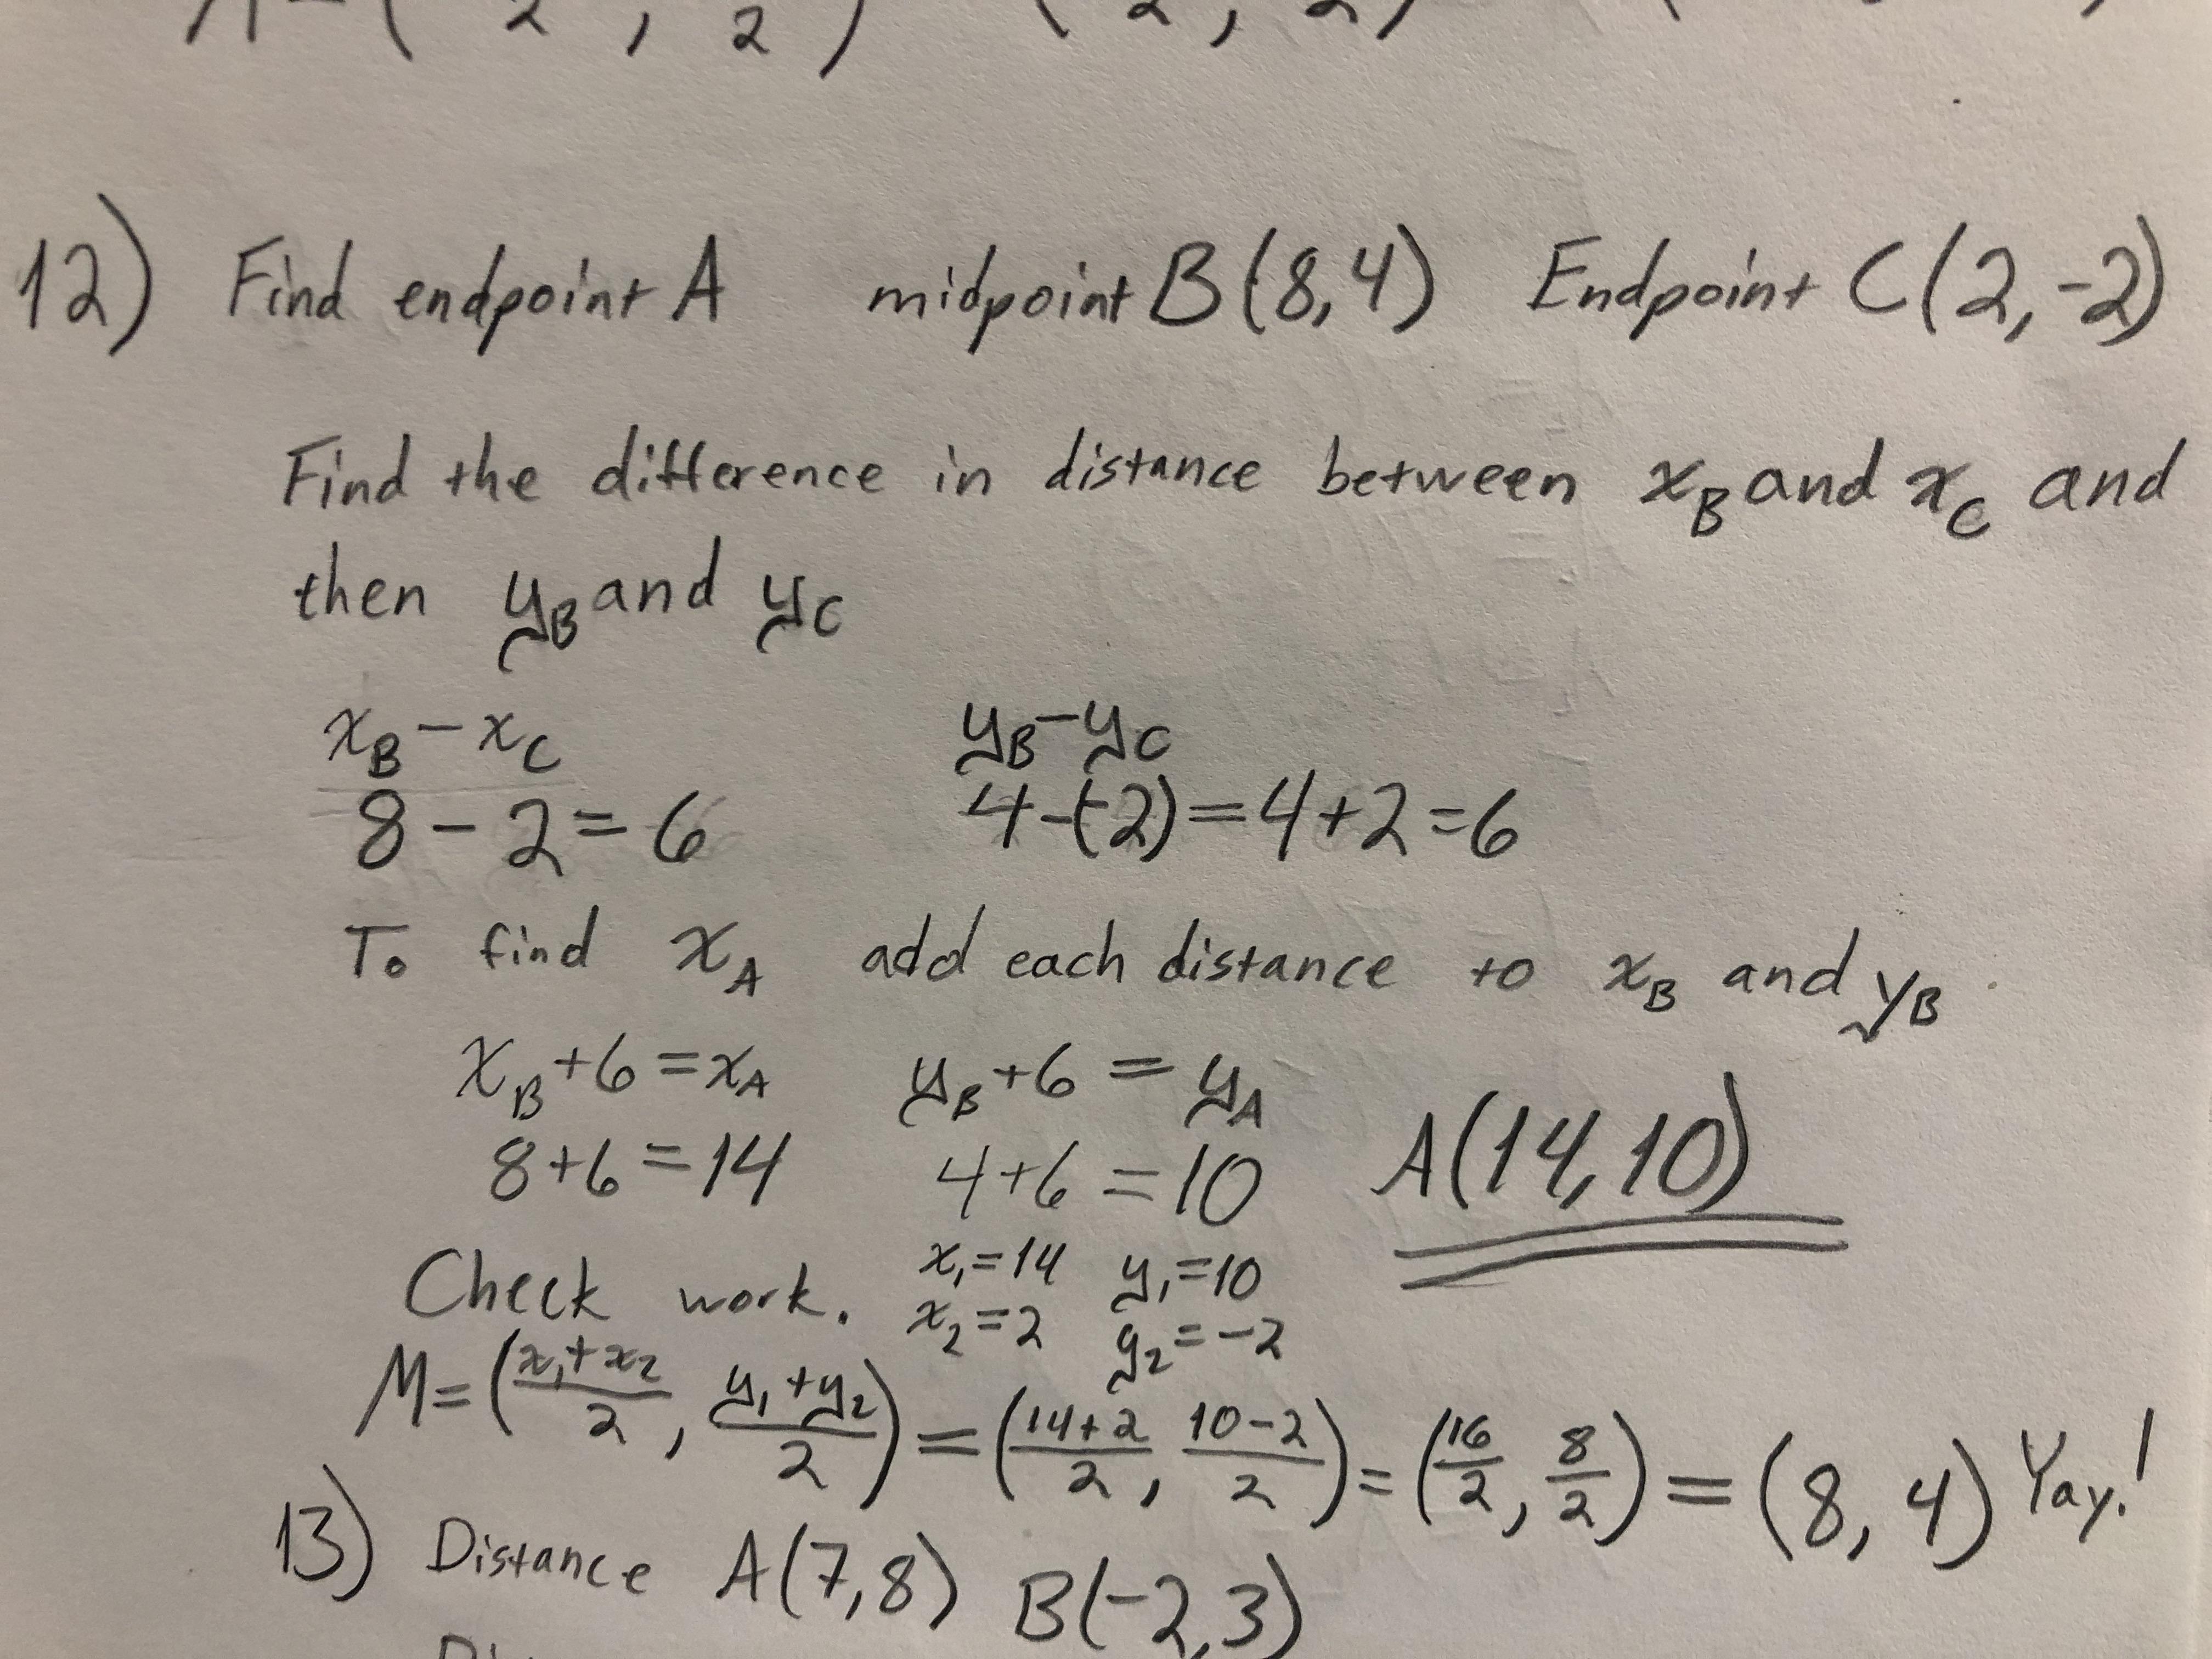 ( 2 , 2 ) ( 2 , 2 )
12) Find endpoint A midpoint B(8,4) Endpoint C(2,-2)
Find the difference in distance between x_B and x_C and
then y_B and y_C
x_B - x_C y_B - y_C
8 - 2 = 6 4-(-2) = 4+2 = 6
To find x_A add each distance to x_B and y_B.
x_B + 6 = x_A y_B + 6 = y_A
8+6 = 14 4+6 = 10 A(14,10)
Check work. x₁=14 y₁=10
x₂=2 y₂=-2
M= (x₁+x₂/2, y₁+y₂/2) = (14+2/2, 10-2/2) = (16/2, 8/2) = (8,4) Yay!
13) Distance A(7,8) B(-2,3)